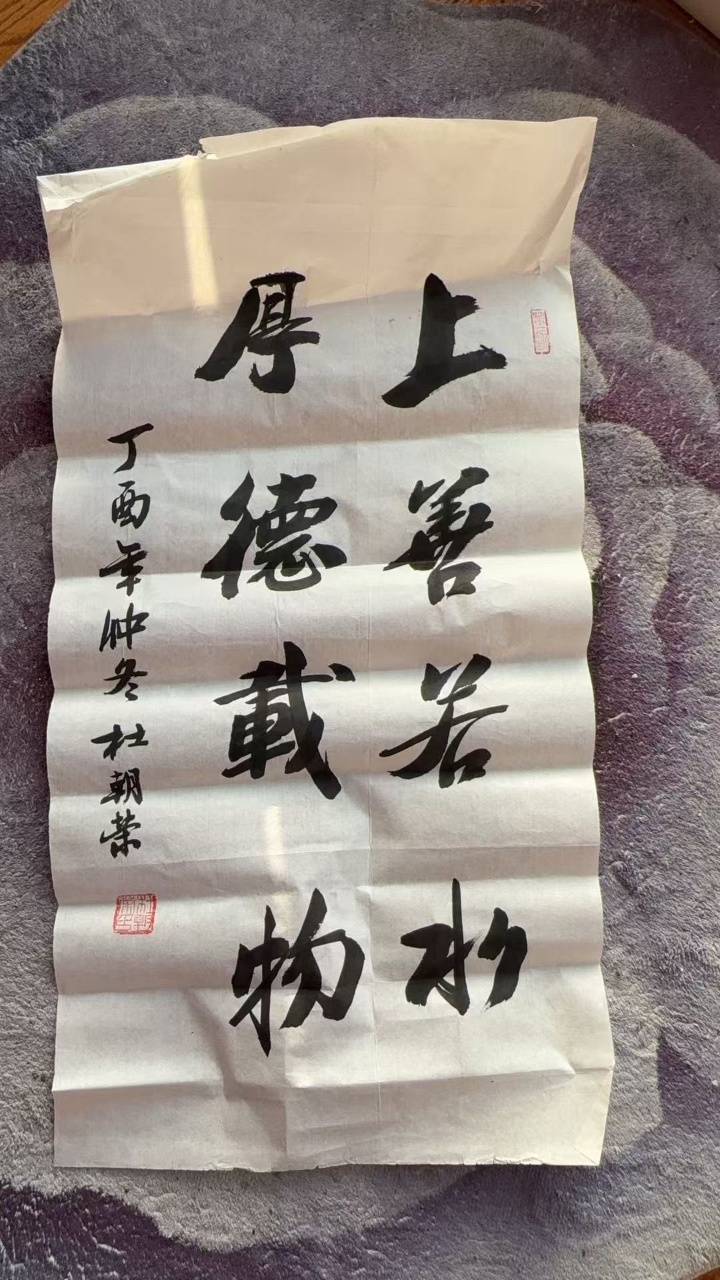 上善若水
厚德載物
丁酉年仲冬 杜朝荣